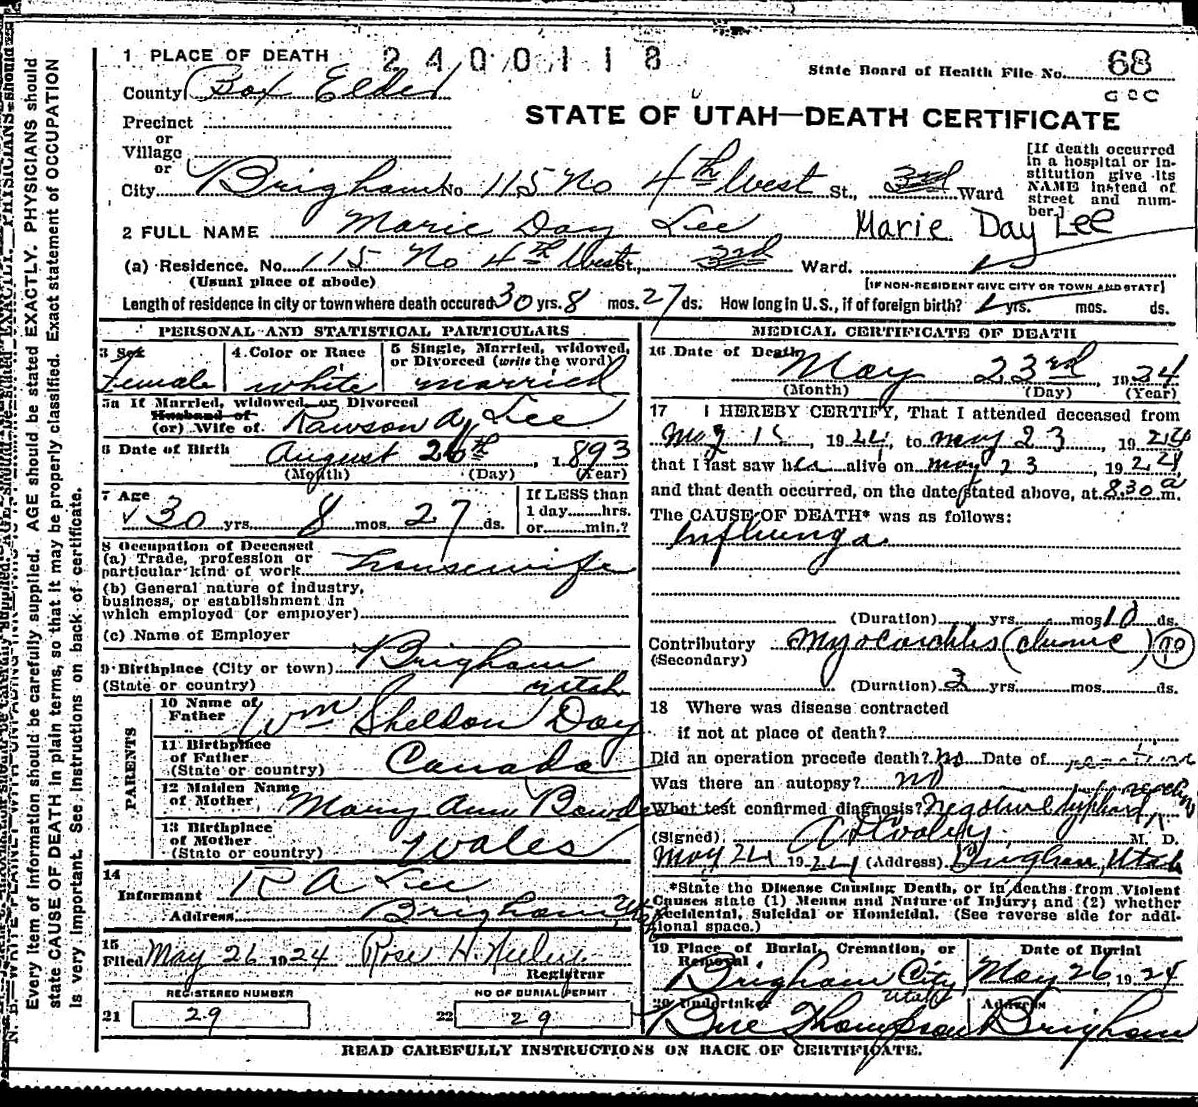 1 PLACE OF DEATH 2400118
State Board of Health File No. 68
County Box Elder
STATE OF UTAH—DEATH CERTIFICATE
Precinct
or
Village
or
City Brigham No 115 No 4th West St., 3rd Ward
[If death occurred
in a hospital or in-
stitution give its
NAME instead of
street and num-
ber.]
2 FULL NAME Marie Day Lee Marie Day Lee
(a) Residence. No. 115 No 4th West St., 3rd Ward.
(Usual place of abode) [IF NON-RESIDENT GIVE CITY OR TOWN AND STATE]
Length of residence in city or town where death occured 30 yrs. 8 mos. 27 ds. How long in U.S., if of foreign birth? yrs. mos. ds.
PERSONAL AND STATISTICAL PARTICULARS
3 Sex
Female
4 Color or Race
white
5 Single, Married, widowed,
or Divorced (write the word)
married
5a If Married, widowed, or Divorced
Husband of
(or) Wife of Rawson A Lee
6 Date of Birth August 26th, 1893
(Month) (Day) (Year)
7 Age
30 yrs. 8 mos. 27 ds.
If LESS than
1 day......hrs.
or......min.?
8 Occupation of Deceased
(a) Trade, profession or
particular kind of work housewife
(b) General nature of industry,
business, or establishment in
which employed (or employer)
(c) Name of Employer
9 Birthplace (City or town) Brigham
(State or country) Utah
PARENTS
10 Name of
Father Wm Sheldon Day
11 Birthplace
of Father
(State or country) Canada
12 Maiden Name
of Mother Mary Ann
13 Birthplace
of Mother
(State or country) Wales
14
Informant R A Lee
Address Brigham Utah
15
Filed May 26 1924 Rose H.
Registrar
REGISTERED NUMBER
21 29
NO OF BURIAL PERMIT
22 29
MEDICAL CERTIFICATE OF DEATH
16 Date of Death May 23rd, 1924
(Month) (Day) (Year)
17 I HEREBY CERTIFY, That I attended deceased from
May 15, 1924, to May 23, 1924
that I last saw her alive on May 23, 1924
and that death occurred, on the date stated above, at 8.30 a m.
The CAUSE OF DEATH* was as follows:
Influenza
(Duration) yrs. mos 10 ds.
Contributory Myocarditis (chronic) 90
(Secondary)
(Duration) 3 yrs. mos. ds.
18 Where was disease contracted
if not at place of death?
Did an operation precede death? no Date of
Was there an autopsy? no
What test confirmed diagnosis? Negative typhoid
(Signed) M. D.
May 24 1924 (Address) Brigham, Utah
*State the Disease Causing Death, or in deaths from Violent
Causes state (1) Means and Nature of Injury; and (2) whether
Accidental, Suicidal or Homicidal. (See reverse side for addi-
tional space.)
19 Place of Burial, Cremation, or
Removal
Brigham City, Utah
Date of Burial
May 26, 1924
20 Undertaker
Thompson
Address
Brigham
READ CAREFULLY INSTRUCTIONS ON BACK OF CERTIFICATE.
Every item of information should be carefully supplied. AGE should be stated EXACTLY. PHYSICIANS should
state CAUSE OF DEATH in plain terms, so that it may be properly classified. Exact statement of OCCUPATION
is very important. See instructions on back of certificate.